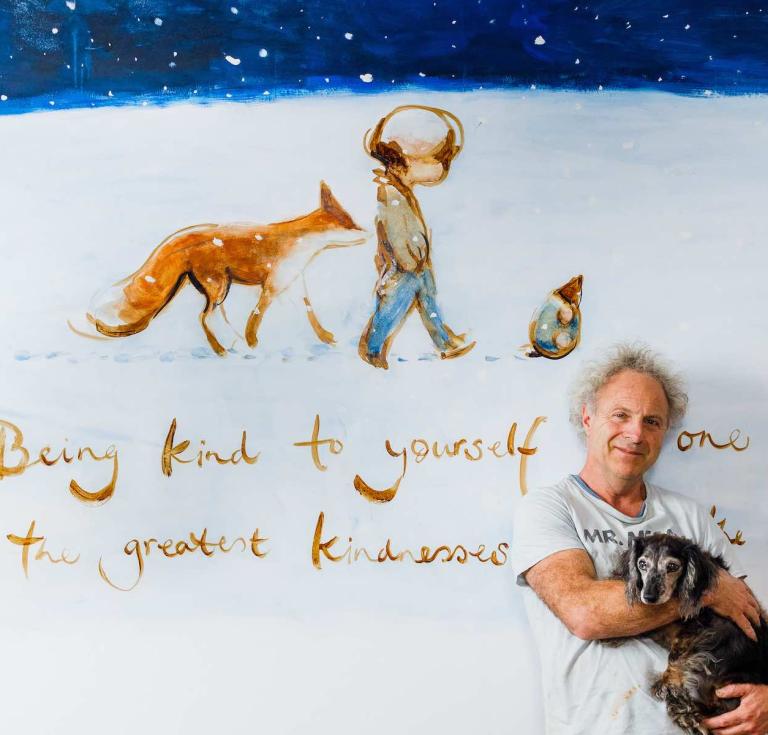 Being kind to yourself one
the greatest kindnesses
MR.